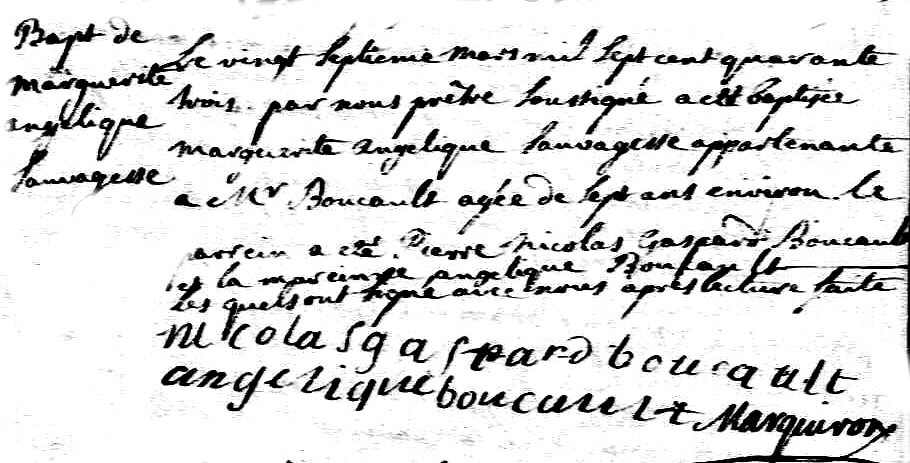 Bapt de
marguerite
angelique
Sauvagesse
Le vingt septieme mars mil sept cent quarante
trois. par nous prêtre soussigné a eté baptisée
marguerite angelique sauvagesse appartenante
a Mr Boucault agée de sept ans environ. le
parrein a eté Pierre Nicolas Gaspard Boucault
et la mareinne angelique Boucault
Les quels ont signé avec nous apres lecture faite
nicolas gaspard boucault
angelique boucault Marquiron